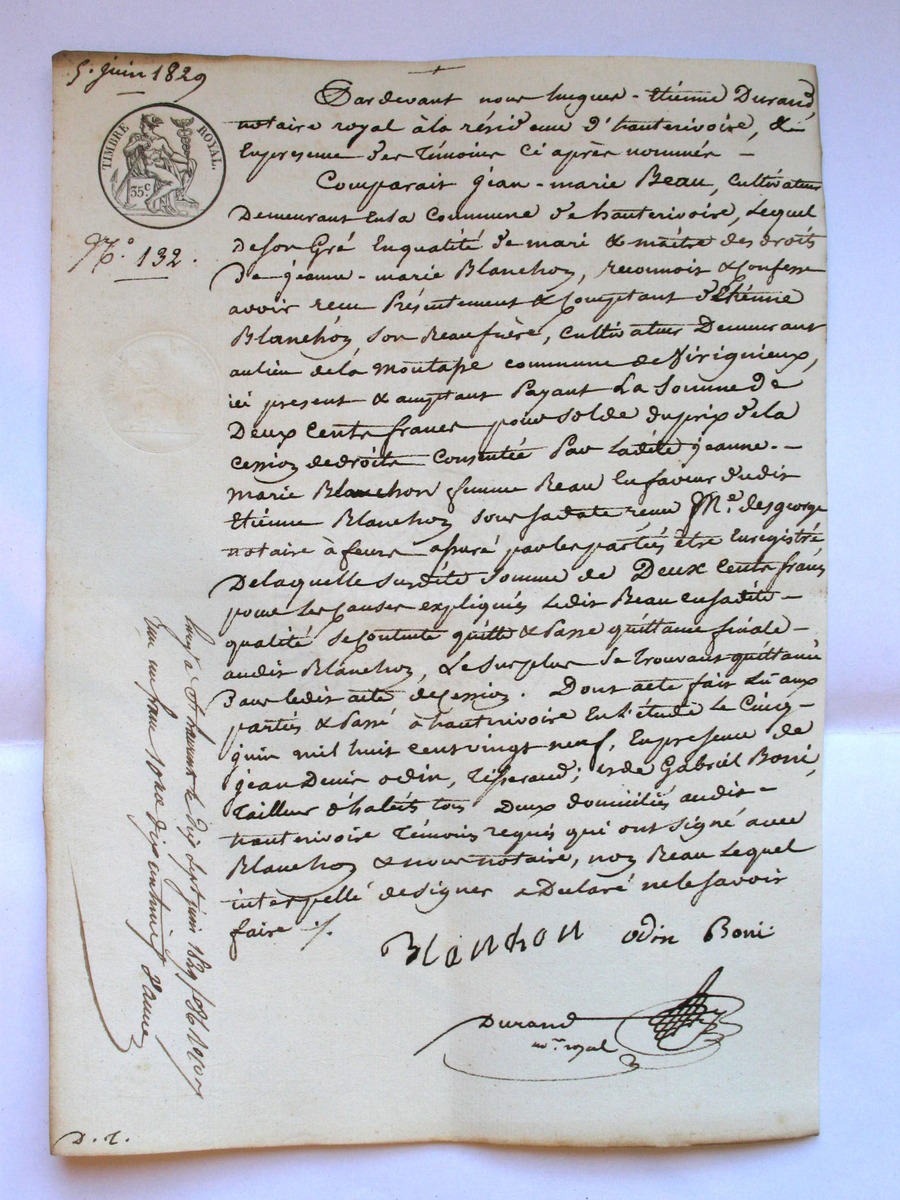 5. juin 1829
TIMBRE ROYAL.
35c.
N.o 132.
Pardevant nous Jacques-Etienne Durand,
notaire royal à la résidence d'hauterivoire, &
En presence des témoins ci après nommés -
Comparait jéan-marie Beau, Cultivateur
Demeurant En la Commune d'e hauterivoire, Lequel
De son Gré En qualité d'e mari & maître des droits
De jéanne-marie Blanchon, reconnoit & Confesse
avoir recu Présentement & Comptant d'Etiénne
Blanchon, son Beaufrère, Cultivateur Demeurant
au lieu de la montagne commune de Virignieux,
ici present & acceptant Payant La Somme de
Deux Cents francs pour solde du prix d'e la
cession de droits Consentie Par Ladite jéanne-
marie Blanchon femme Beau En faveur dudit
Etiénne Blanchon sous sa date recu M.e desgeorge
notaire à feurs assuré par les parties être Enregistré
De laquelle susdite Somme de Deux Cents francs
pour les Causes expliquées Ledit Beau en sadite-
qualité se contente quitte & Passe quittance finale-
audit Blanchon, Le Surplus Se trouvant quittancé
Dans ledit acte de Cession. Dont acte fait Lû aux
parties & Passé à hauterivoire En l'étude Le Cinq-
juin mil huit cent vingt neuf, En presence de
jéan Denis odin, Tisserand; et de Gabriel Boni,
Tailleur d'habits tous Deux domiciliés audit-
hauterivoire Témoins requis qui ont signé avec
Blanchon & nous notaire, non Beau Lequel
interpellé de signer a Déclaré ne le savoir
faire ./.
Blanchon odin Boni
Durand
no.re royal
Enreg.é à St Laurent le dix sept juin 1829 f.o 86
Reçu un franc dix centimes
D. T.